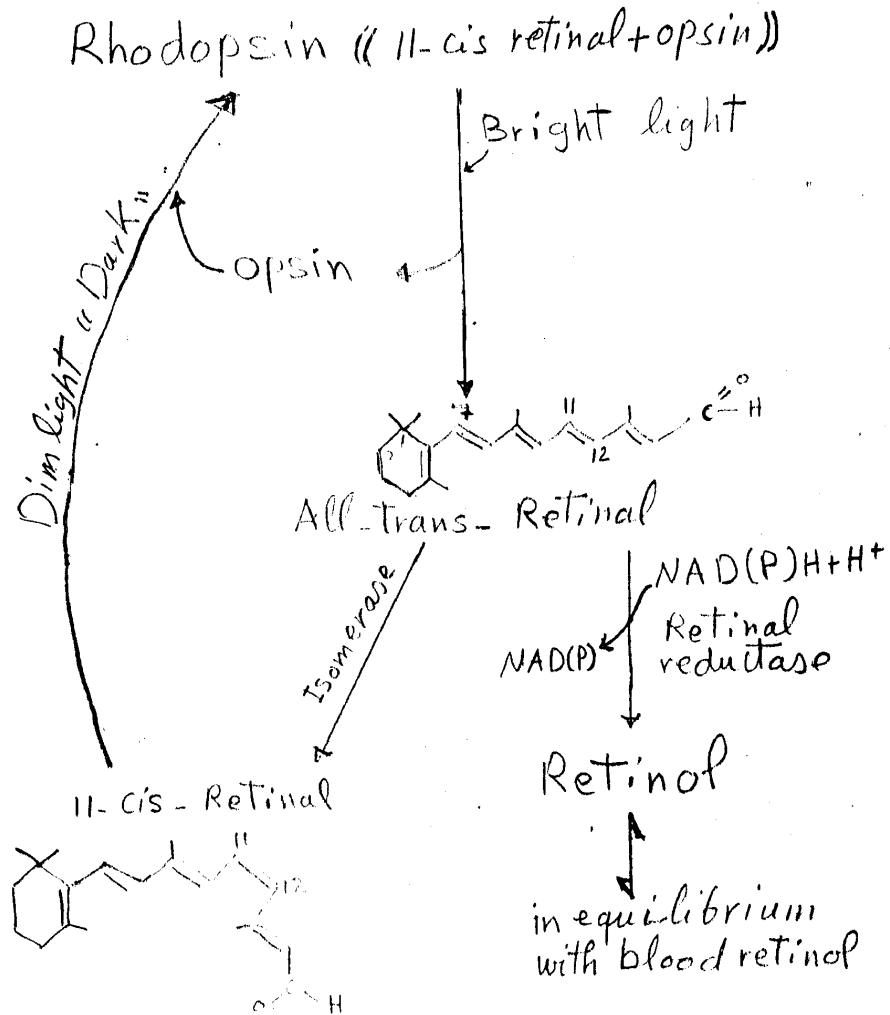 Rhodopsin (( 11-cis retinal+opsin))
Bright light
Dim light "Dark"
opsin
7
11
12
C
O
H
All-trans- Retinal
Isomerase
NAD(P)H+H+
NAD(P)
Retinal
reductase
Retinol
11-Cis-Retinal
11
12
O
H
in equilibrium
with blood retinol